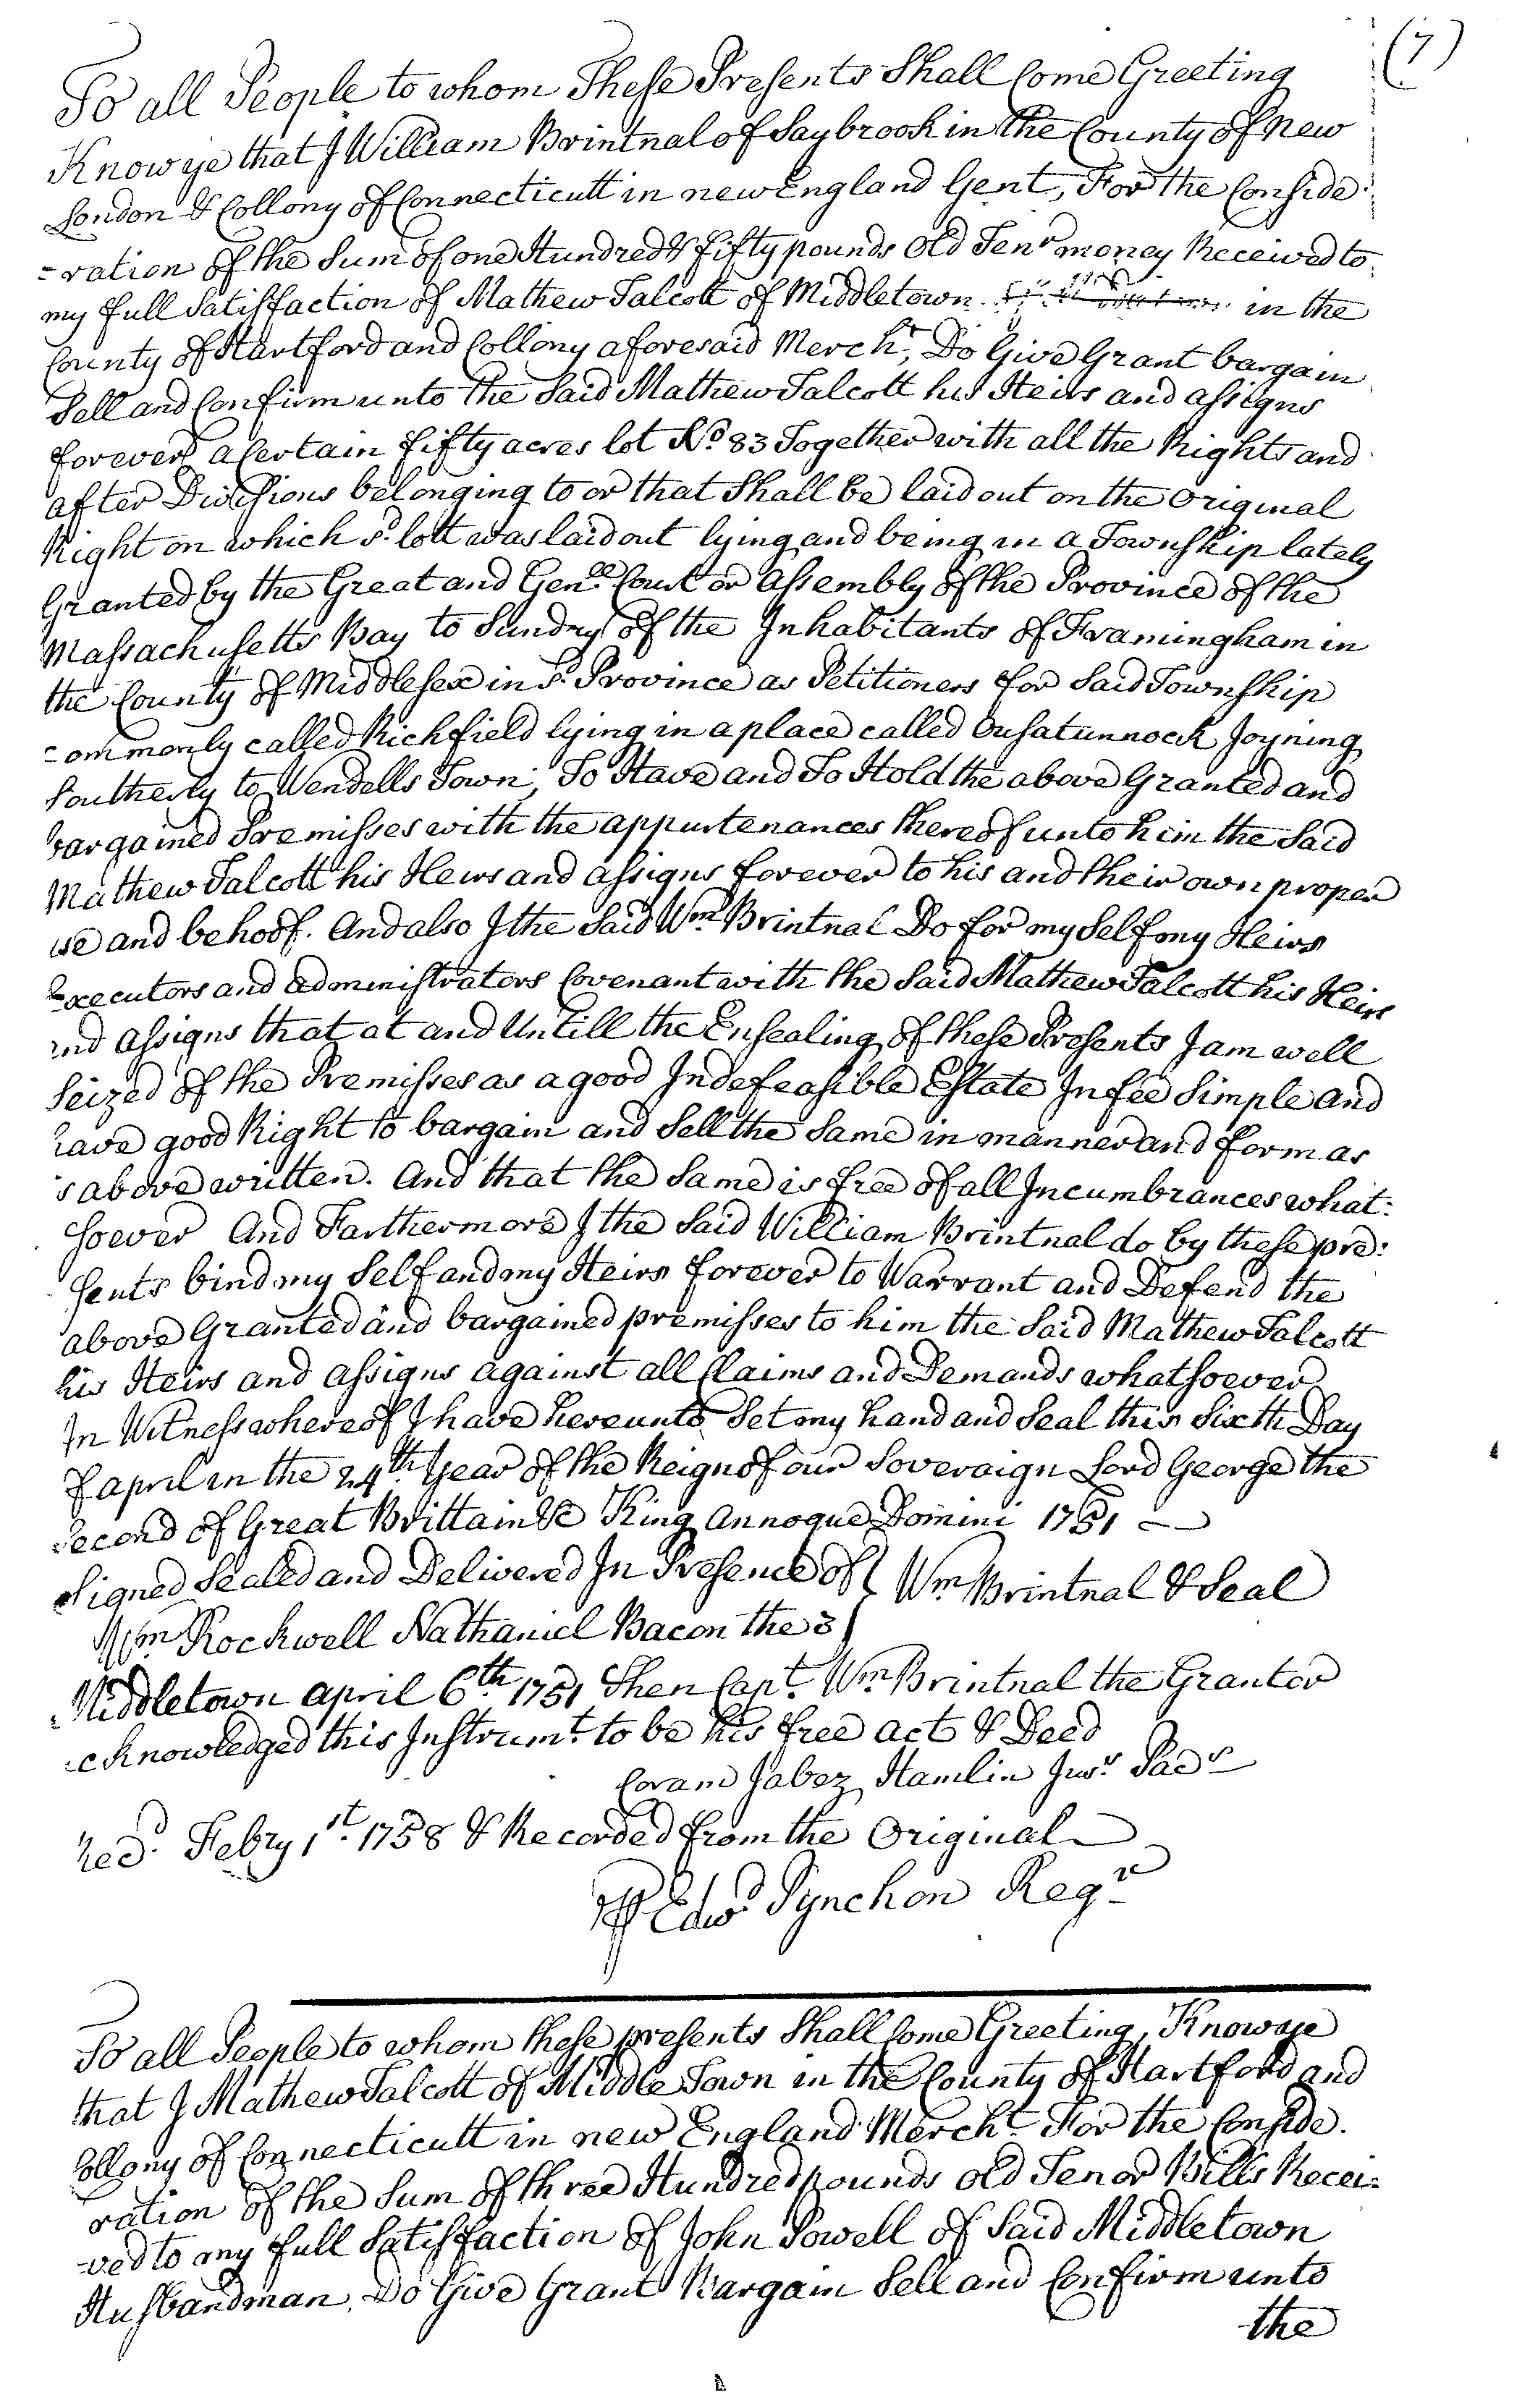 (7)
To all People to whom These Presents Shall Come Greeting
Know ye that I William Brintnal of Saybrook in the County of New
London & Collony of Connecticutt in new England Gent, For the Conside:
=ration of the Sum of one Hundred & fifty pounds Old Tenr money Received to
my full Satisfaction of Mathew Talcott of Middletown in the
County of Hartford and Collony aforesaid Mercht, Do Give Grant bargain
Sell and Confirm unto the Said Mathew Talcott his Heirs and assigns
forever a Certain fifty acres lot No 83 Together with all the Rights and
after Divisions belonging to or that Shall be laid out on the Original
Right on which sd. lott was laid out lying and being in a Township lately
Granted by the Great and Genll Court or Assembly of the Province of the
Massachusetts Bay to Sundry of the Inhabitants of Framingham in
the County of Middlesex in sd. Province as Petitioners for Said Township
commonly called Richfield lying in a place called Ousatunnock Joyning
Southerly to Wendells Town, To Have and To Hold the above Granted and
bargained Premisses with the appurtenances thereof unto him the Said
Mathew Talcott his Heirs and assigns forever to his and their own proper
use and behoof. And also I the Said Wm Brintnal Do for my Self my Heirs
Executors and administrators Covenant with the Said Mathew Talcott his Heirs
and assigns that at and Untill the Ensealing of these Presents I am well
Seized of the Premisses as a good Indefeasible Estate In fee Simple and
have good Right to bargain and Sell the Same in manner and form as
is above written. And that the Same is free of all Incumbrances what:
soever And Farthermore I the Said William Brintnal do by these pre:
sents bind my Self and my Heirs forever to Warrant and Defend the
above Granted and bargained premisses to him the Said Mathew Talcott
his Heirs and assigns against all Claims and Demands whatsoever
In Witness whereof I have hereunto Set my hand and Seal this Sixth Day
of april in the 24th Year of the Reign of our Soveraign Lord George the
Second of Great Brittain &c King Annoque Domini 1751
Signed Sealed and Delivered In Presence of } Wm Brintnal & Seal
Wm Rockwell Nathaniel Bacon the 3
Middletown april 6th 1751 Then Capt. Wm Brintnal the Grantor
acknowledged this Instrumt. to be his free act & Deed
Coram Jabez Hamlin Jusr Pacr
Recd. Febry 1st. 1758 & Recorded from the Original
℔ Edwd Pynchon Regr
To all People to whom these presents Shall Come Greeting, Know ye
that I Mathew Talcott of Middle Town in the County of Hartford and
Collony of Connecticutt in new England Mercht For the Conside.
ration of the Sum of three Hundred pounds old Tenor Bills Recei:
-ved to my full Satisfaction of John Powell of Said Middletown
Husbandman, Do Give Grant Bargain Sell and Confirm unto
the